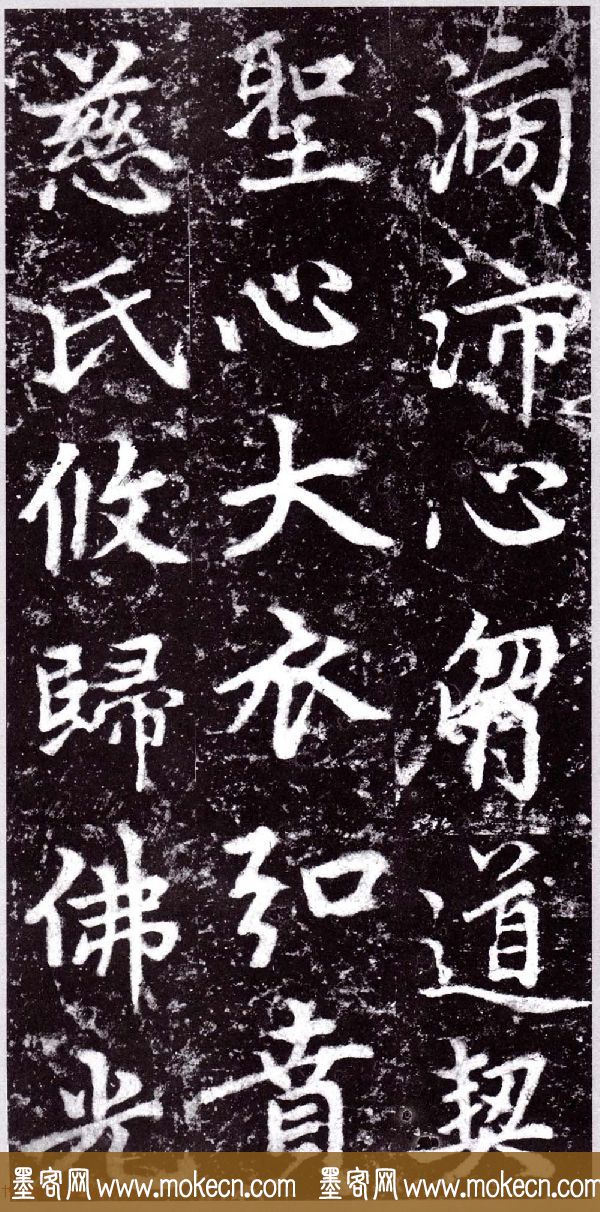 滂沛心胷道契
聖心大衣弘賁
慈氏攸歸佛光
墨客网 www.mokecn.com 墨客网 www.mokecn.com